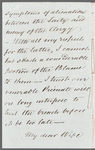 symptoms of alienation
between the Laity and
many of the Clergy.
With all my respect
for the latter, I cannot
but attach a considerable
portion of the blame
to them. I trust our
venerable Primate will
ere long interpose to
heal the breach before
it be too late.
My dear